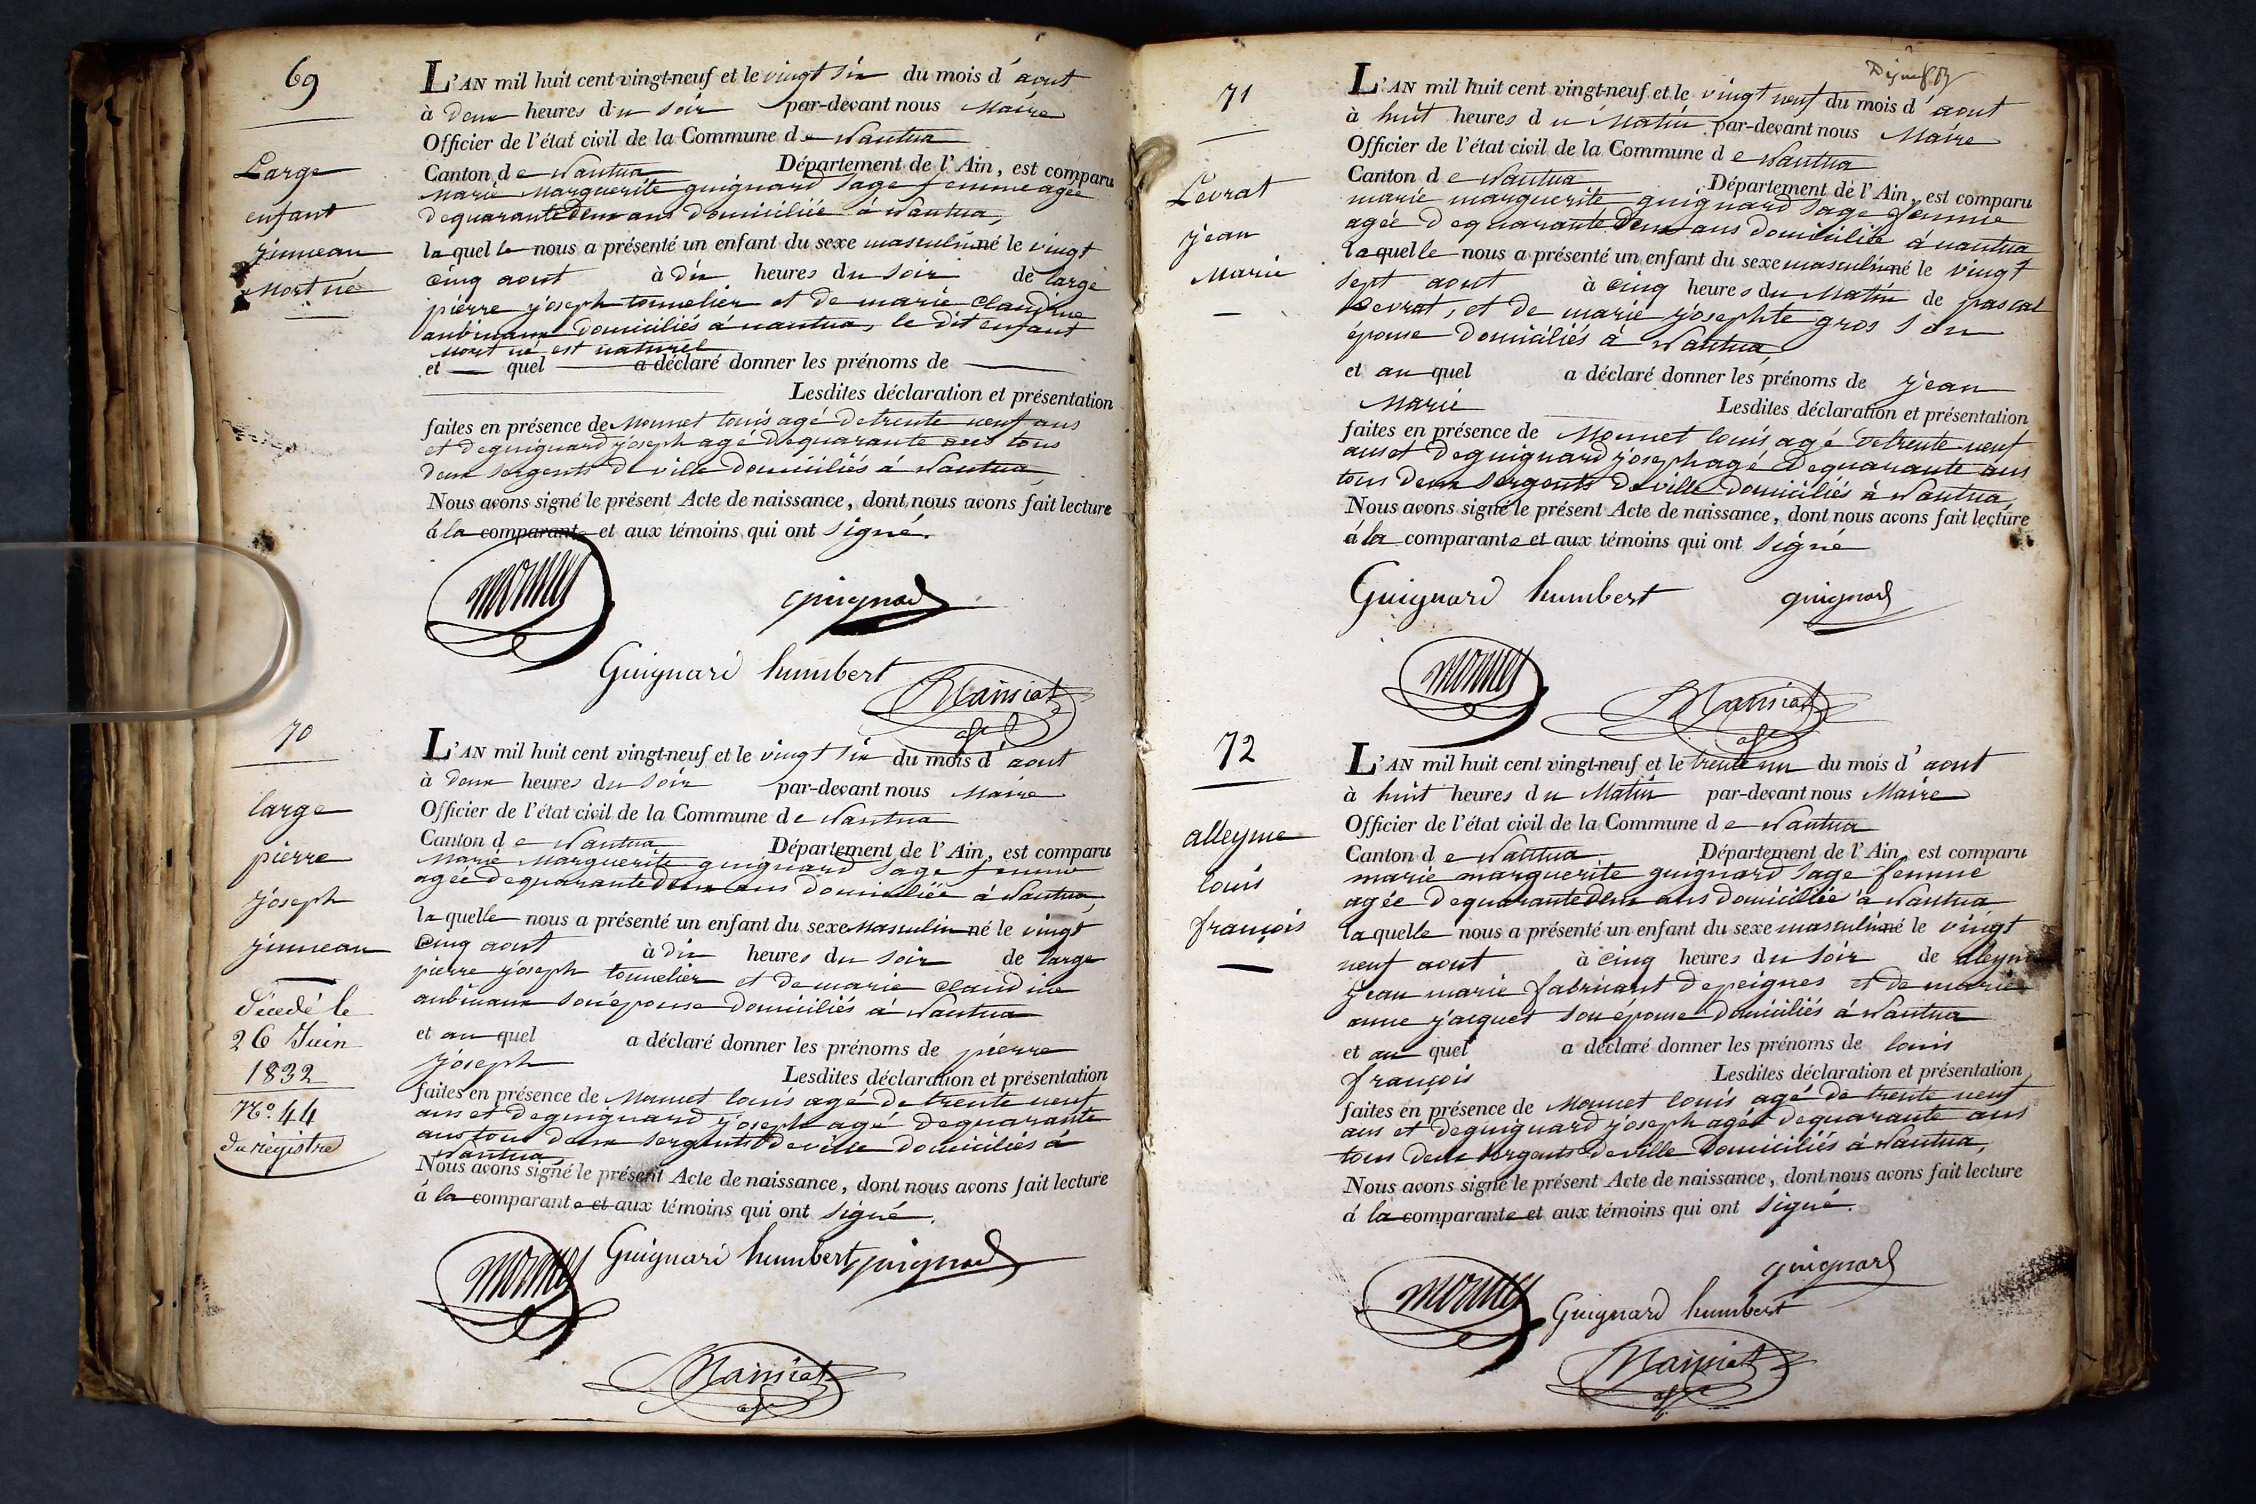 69
Large
enfant
jumeau
Mort né
L'AN mil huit cent vingt-neuf et le vingt six du mois d'aout
à deux heures du soir par-devant nous Maire
Officier de l'état civil de la Commune de Nantua
Canton de Nantua Département de l'Ain, est comparu
Marie Marguerite guignard sage femme agée
de quarante deux ans domiciliée à Nantua,
laquelle nous a présenté un enfant du sexe masculin né le vingt
cinq aout à dix heures du soir de large
pierre joseph tonnelier et de marie Claudine
aubinaux domiciliés à nantua, le dit enfant
mort né est naturel
et quel a déclaré donner les prénoms de
Lesdites déclaration et présentation
faites en présence de Monnet louis agé de trente neuf ans
et de guignard joseph agé de quarante ans tous
deux sergents de ville domiciliés à Nantua
Nous avons signé le présent Acte de naissance, dont nous avons fait lecture
à la comparante et aux témoins qui ont signé.
monnet guignard
Guignard humbert
Mainiat
70
large
pierre
joseph
jumeau
Décédé le
26 Juin
1832
No. 44
du régistre
L'AN mil huit cent vingt-neuf et le vingt six du mois d'aout
à deux heures du soir par-devant nous Maire
Officier de l'état civil de la Commune de Nantua
Canton de Nantua Département de l'Ain, est comparu
Marie Marguerite guignard sage femme
agée de quarante deux ans domiciliée à Nantua,
laquelle nous a présenté un enfant du sexe masculin né le vingt
cinq aout à dix heures du soir de large
pierre joseph tonnelier et de marie claudine
aubinaux son épouse domiciliés à Nantua
et auquel a déclaré donner les prénoms de pierre
joseph Lesdites déclaration et présentation
faites en présence de Monnet louis agé de trente neuf
ans et de guignard joseph agé de quarante
ans tous deux sergents de ville domiciliés à
Nantua,
Nous avons signé le présent Acte de naissance, dont nous avons fait lecture
à la comparante et aux témoins qui ont signé.
monnet Guignard humbert guignard
Mainiat
71
Levrat
jean
Marie
L'AN mil huit cent vingt-neuf et le vingt neuf du mois d'aout
à huit heures du Matin par-devant nous Maire
Officier de l'état civil de la Commune de Nantua
Canton de Nantua Département de l'Ain, est comparu
marie marguerite guignard sage femme
agée de quarante deux ans domiciliée à nantua
laquelle nous a présenté un enfant du sexe masculin né le vingt
sept aout à cinq heures du Matin de pascal
Levrat, et de marie josephte gros son
épouse domiciliés à Nantua
et auquel a déclaré donner les prénoms de jean
Marie Lesdites déclaration et présentation
faites en présence de Monnet louis agé de trente neuf
ans et de guignard joseph agé de quarante ans
tous deux sergents de ville domiciliés à Nantua,
Nous avons signé le présent Acte de naissance, dont nous avons fait lecture
à la comparante et aux témoins qui ont signé
Guignard humbert guignard
monnet Mainiat
72
alleyme
louis
françois
L'AN mil huit cent vingt-neuf et le trente un du mois d'aout
à huit heures du Matin par-devant nous Maire
Officier de l'état civil de la Commune de Nantua
Canton de Nantua Département de l'Ain, est comparu
marie marguerite guignard sage femme
agée de quarante deux ans domiciliée à Nantua
laquelle nous a présenté un enfant du sexe masculin né le vingt
neuf aout à cinq heures du soir de
jean marie fabricant de peignes et de marie
anne jacquet son épouse domiciliés à Nantua
et auquel a déclaré donner les prénoms de louis
françois Lesdites déclaration et présentation
faites en présence de Monnet louis agé de trente neuf
ans et de guignard joseph agée de quarante ans
tous deux sergents de ville domiciliés à Nantua,
Nous avons signé le présent Acte de naissance, dont nous avons fait lecture
à la comparante et aux témoins qui ont signé.
guignard
monnet Guignard humbert
Mainiat